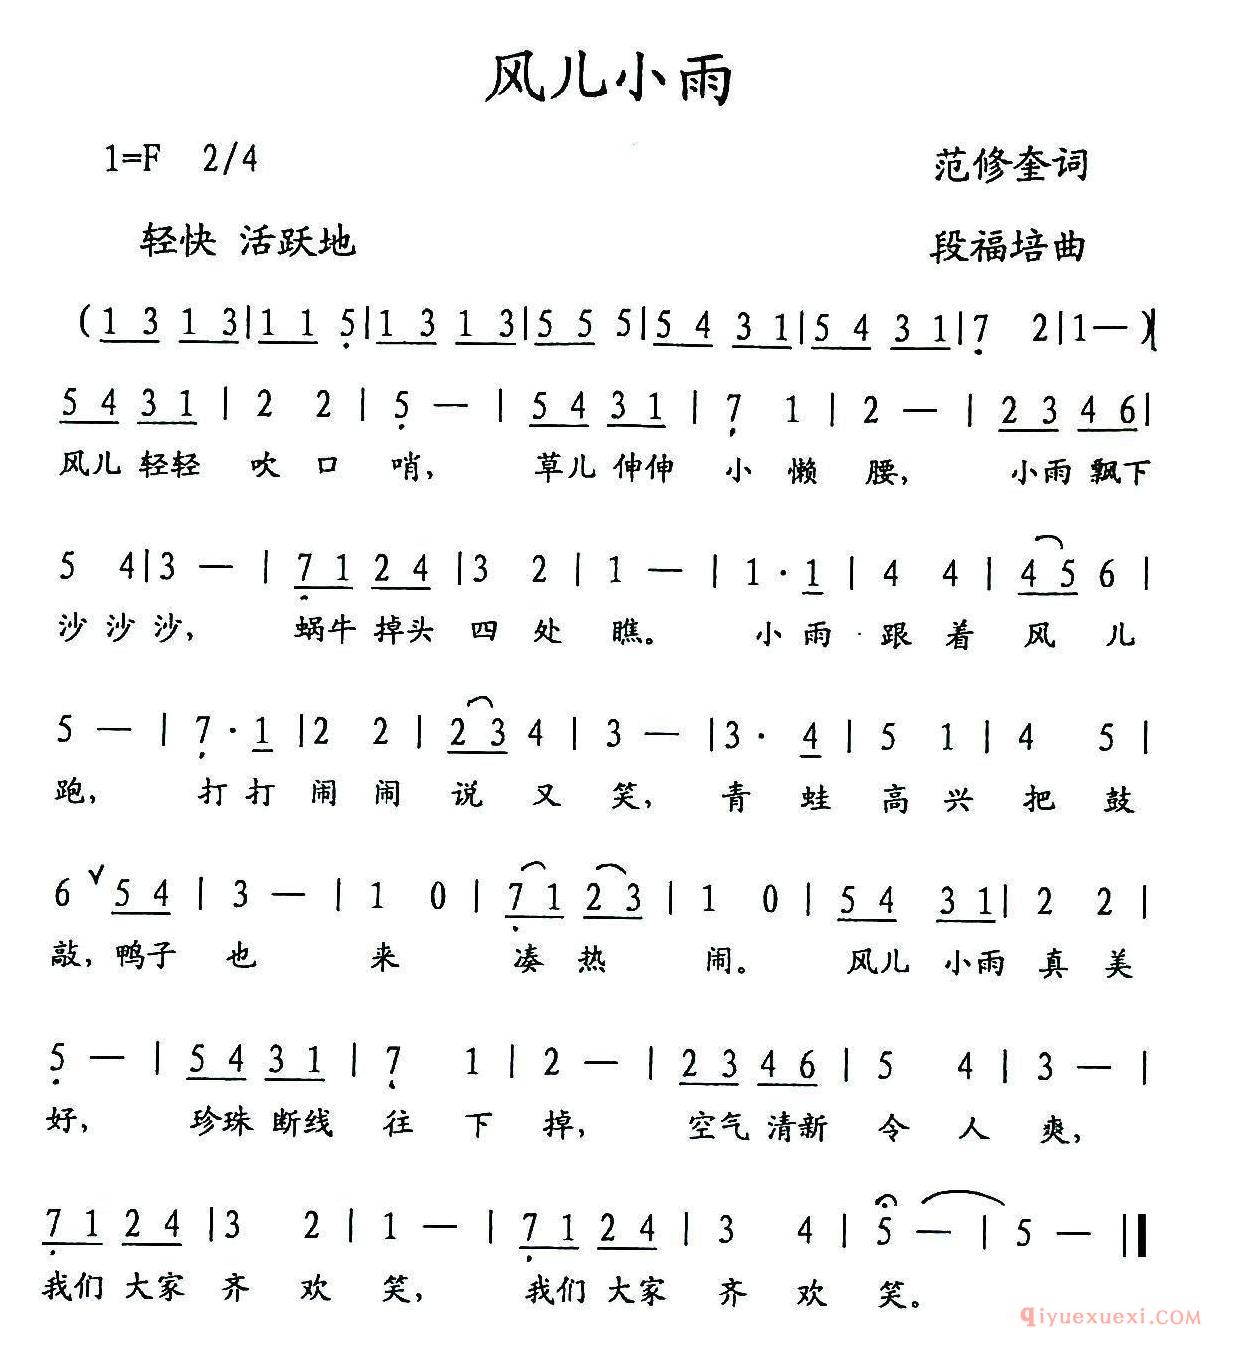 风儿小雨
1=F 2/4
范修奎词
轻快 活跃地
段福培曲
(1 3 1 3|1 1 5|1 3 1 3|5 5 5|5 4 3 1|5 4 3 1|7 2|1—)|
5 4 3 1 | 2 2 | 5 — | 5 4 3 1 | 7 1 | 2 — | 2 3 4 6|
风儿 轻轻 吹 口 哨, 草儿 伸伸 小 懒 腰, 小雨 飘下
5 4|3 — | 7 1 2 4 |3 2 | 1 — | 1 · 1 | 4 4 | 4 5 6 |
沙 沙 沙, 蜗牛 掉头 四 处 瞧。 小 雨 跟 着 风 儿
5 — | 7 · 1 |2 2 | 2 3 4 | 3 — |3 · 4 | 5 1 | 4 5 |
跑, 打 打 闹 闹 说 又 笑, 青 蛙 高 兴 把 鼓
6 ∨ 5 4 | 3 — | 1 0 | 7 1 2 3 | 1 0 | 5 4 3 1| 2 2 |
敲, 鸭子 也 来 凑 热 闹。 风儿 小雨 真 美
5 — | 5 4 3 1 | 7 1 | 2 — | 2 3 4 6 | 5 4 | 3 — |
好, 珍珠 断线 往 下 掉, 空气 清新 令 人 爽,
7 1 2 4 |3 2 | 1 — | 7 1 2 4 | 3 4 | 5 — | 5 — ‖
我们 大家 齐 欢 笑, 我们 大家 齐 欢 笑。
qiyuexuexi.COM